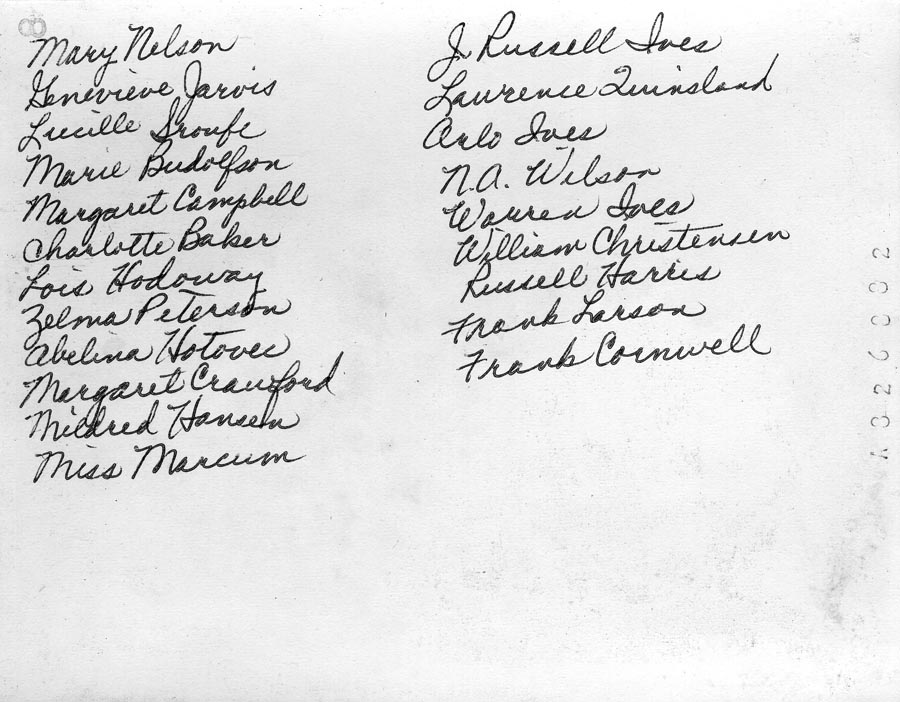 Mary Nelson
Genevieve Jarvis
Lucille Sroufe
Marie Budolfson
Margaret Campbell
Charlotte Baker
Lois Hodoway
Zelma Peterson
Abelina Hotovec
Margaret Crawford
Mildred Hansen
Miss Marcum
J. Russell Ives
Laurence Quinsland
Arlo Ives
N.A. Wilson
Warren Ives
William Christensen
Russell Harris
Frank Larson
Frank Cornwell
8